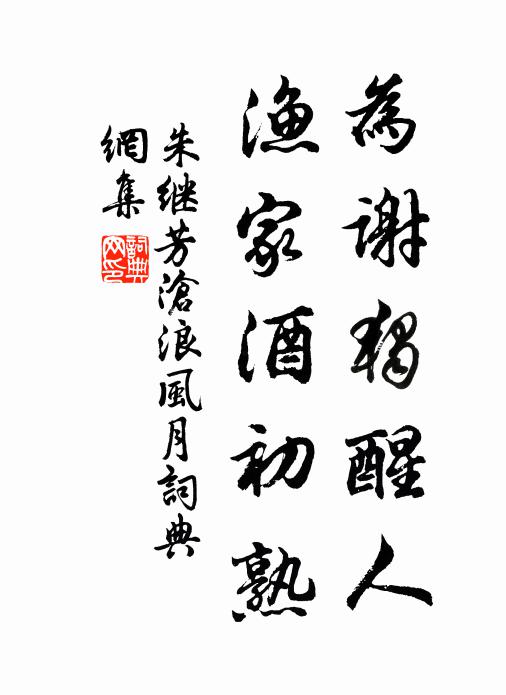 為謝獨醒人
漁家酒初熟
朱继芳滄浪風月詞典
網集
詞典
网印